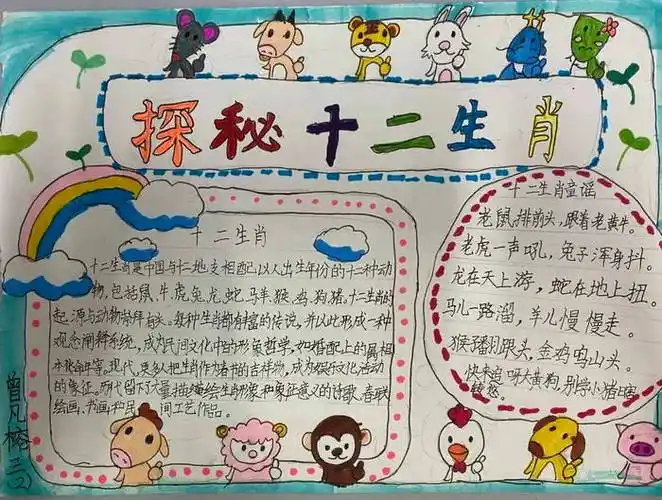 探秘十二生肖
十二生肖
十二生肖是中国与十二地支相配以人出生年份的十二种动
物,包括鼠、牛、虎、兔、龙、蛇、马、羊、猴、鸡、狗、猪。十二生肖的
起源与动物崇拜有关。每种生肖都有丰富的传说,并以此形成一种
观念阐释系统,成为民间文化中的形象哲学,如婚配上的属相
本命年等。现代,更多人把生肖作为春节的吉祥物,成为娱乐文化活动
的象征。历代留下了大量描绘生肖形象和象征意义的诗歌、春联
绘画、书画和民间工艺作品。
十二生肖童谣
老鼠排前头,跟着老黄牛。
老虎一声吼,兔子浑身抖。
龙在天上游,蛇在地上扭。
马儿一路溜,羊儿慢慢走。
猴子翻跟头,金鸡鸣山头。
快来追呀大黄狗,别学小猪
曾凡榕 三(2)